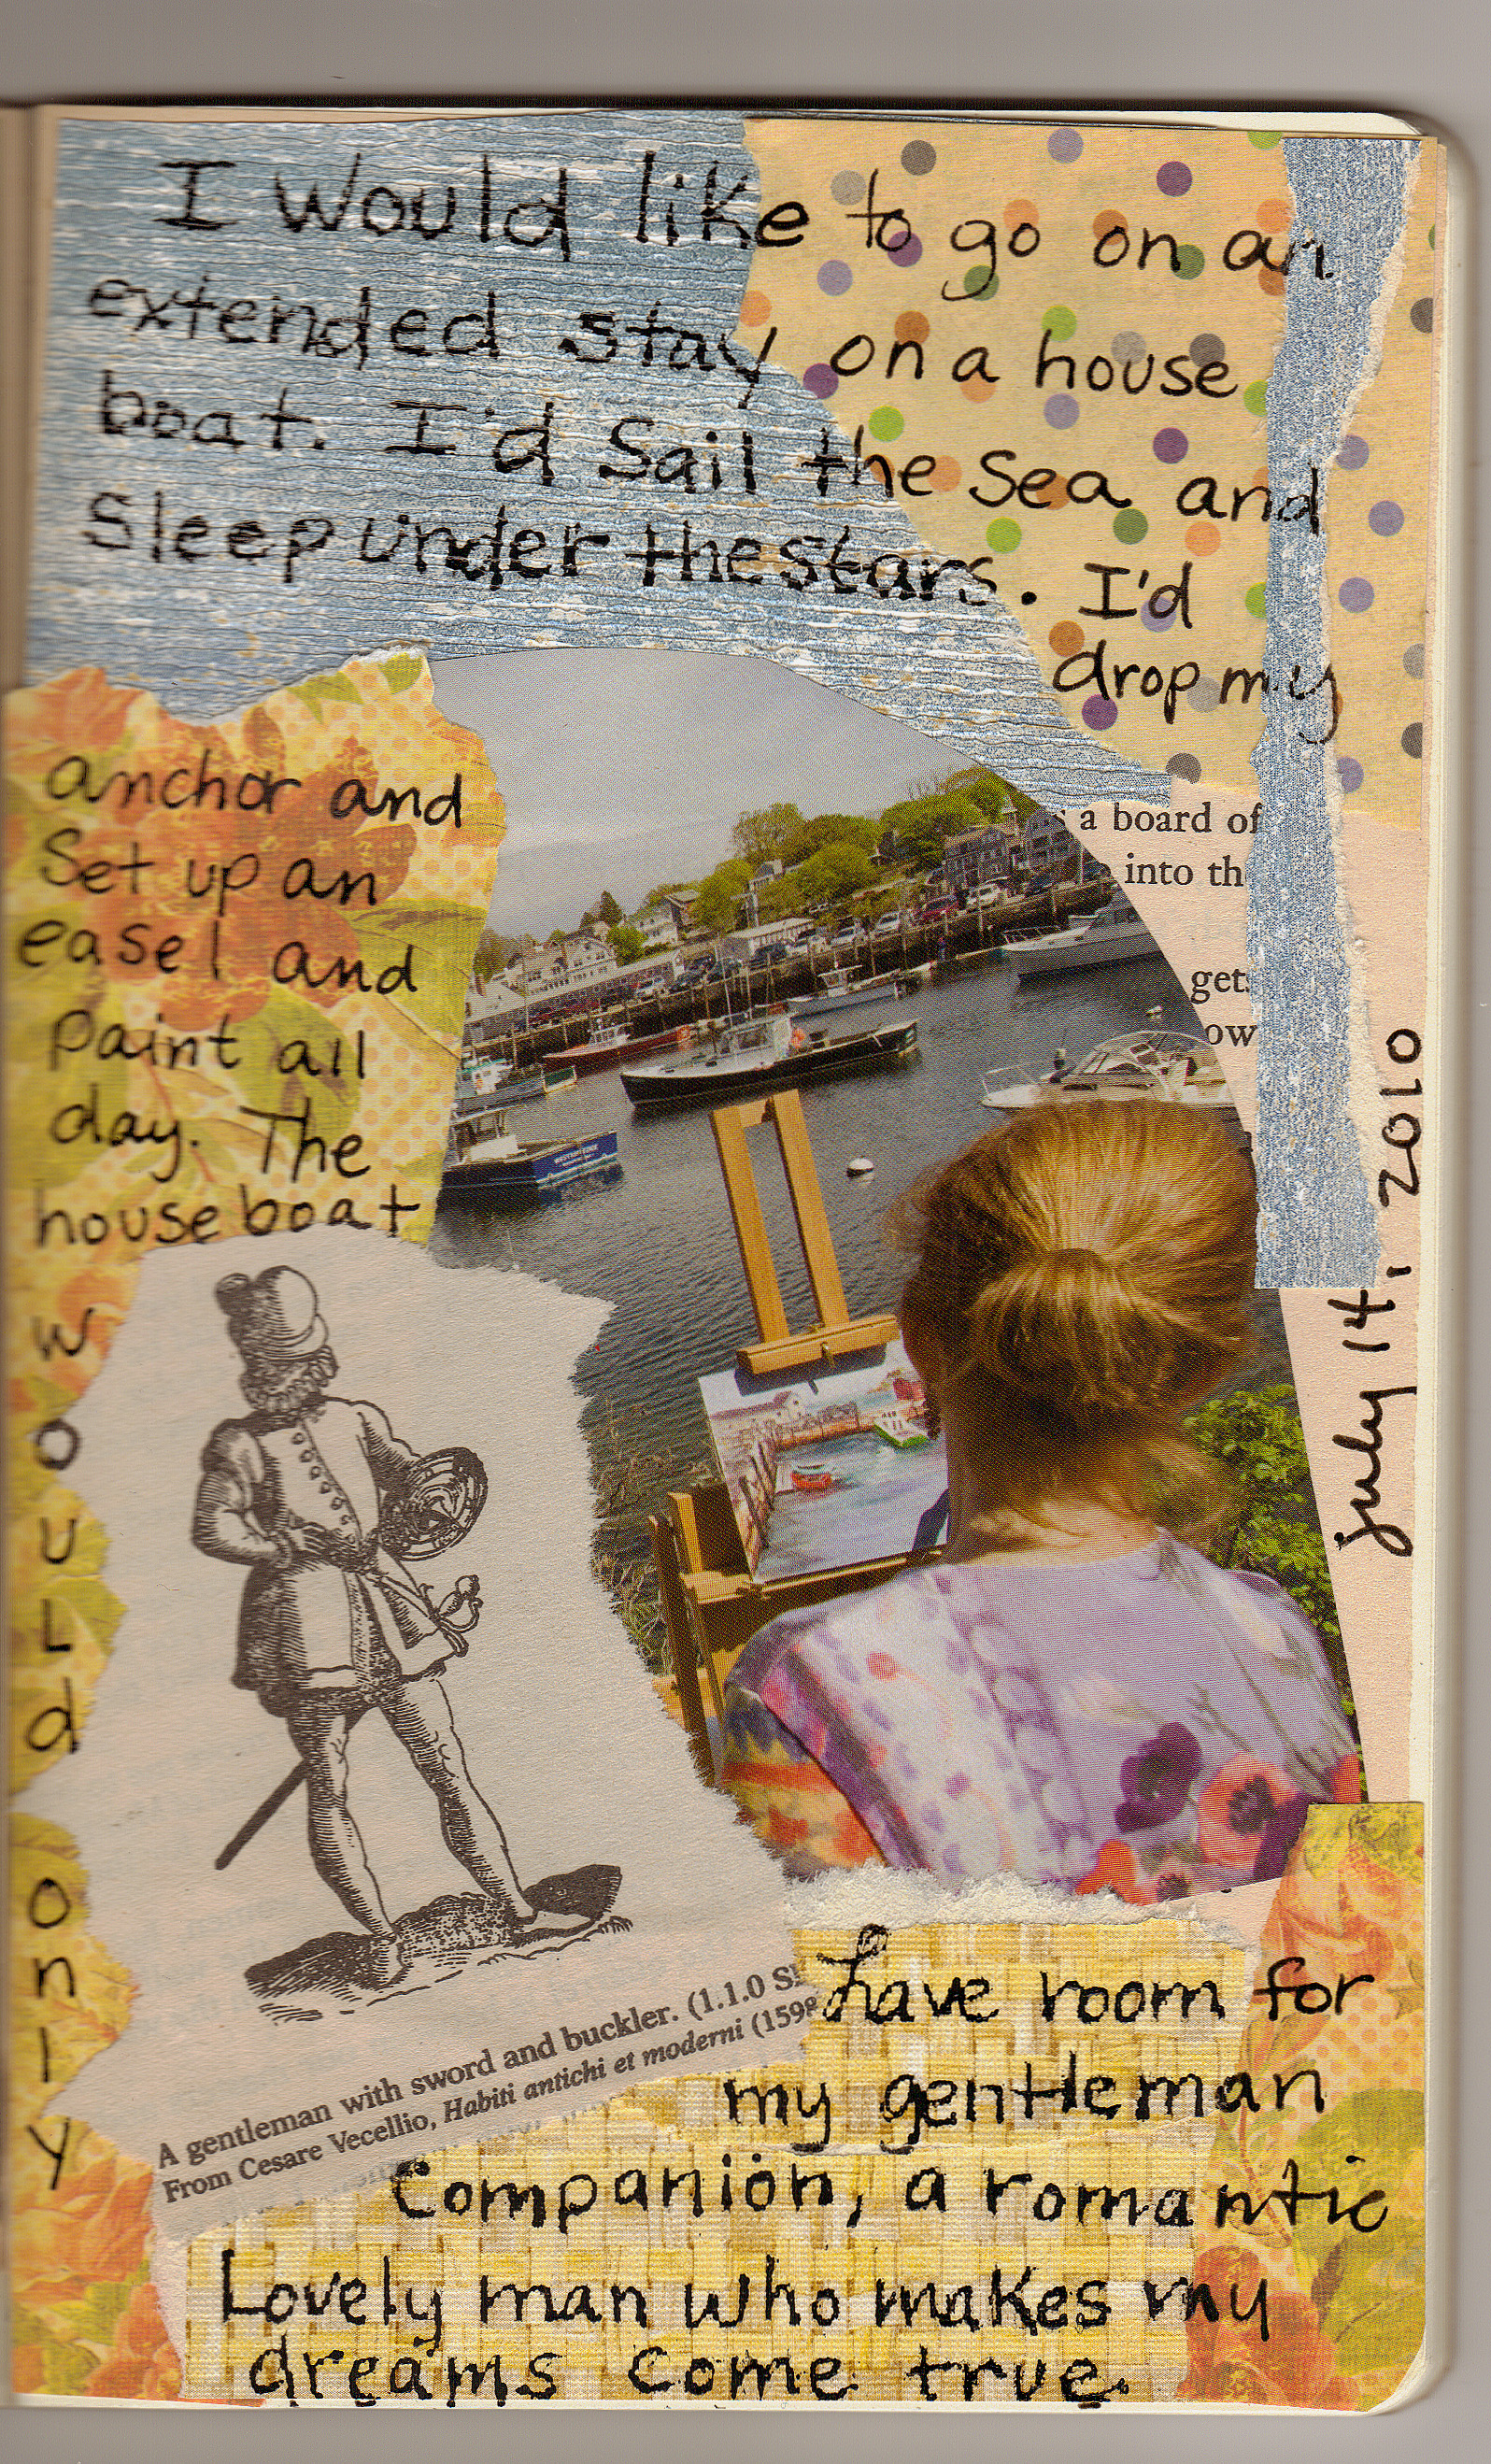 I would like to go on an
extended stay on a house
boat. I'd Sail the Sea and
Sleep under the stars. I'd
drop my
anchor and
Set up an
easel and
paint all
day. The
houseboat
would
only
have room for
my gentleman
Companion, a romantic
Lovely man who makes my
dreams come true.
a board of
into
gets
July 14, 2010
A gentleman with sword and buckler. (1.1.0
From Cesare Vecellio, Habiti antichi et moderni (159